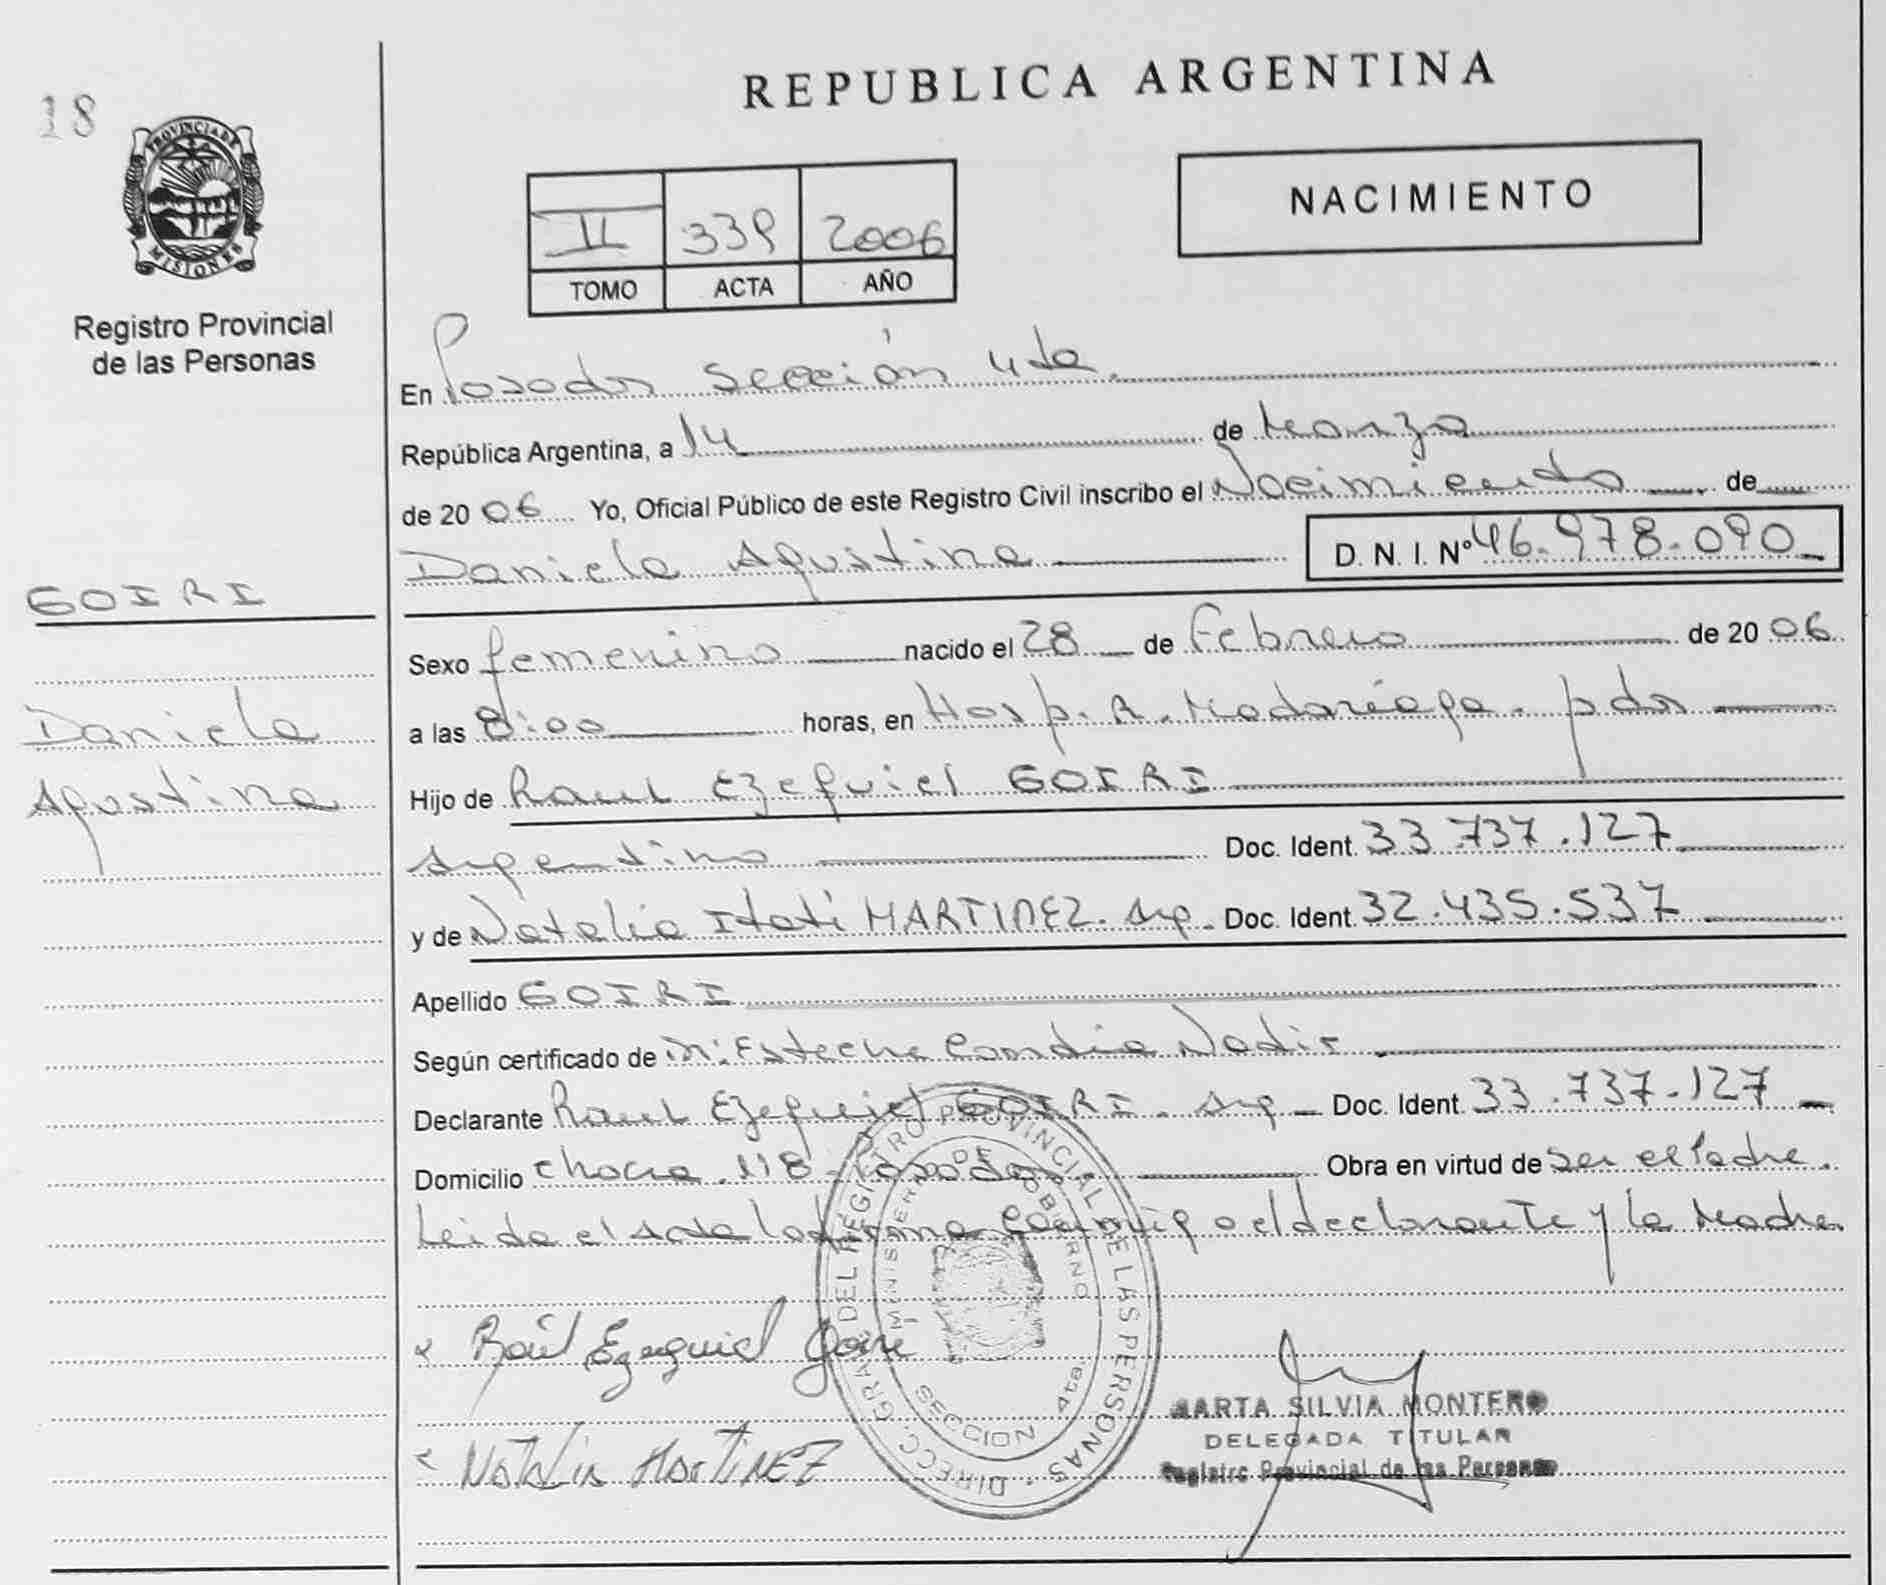 REPUBLICA ARGENTINA
18
PROVINCIA DE
MISIONES
NACIMIENTO
II 339 2006
TOMO ACTA AÑO
Registro Provincial
de las Personas
En Posadas sección 4ta.
República Argentina, a 14 de Marzo
de 2006 Yo, Oficial Público de este Registro Civil inscribo el Nacimiento de
Daniela Agustina D. N. I. Nº 46.978.090
GOIRI
Sexo femenino nacido el 28 de Febrero de 2006
Daniela
a las 8:00 horas, en Hosp. R. Madariaga. pdas
Agustina
Hijo de Raul Ezequiel GOIRI
Argentino Doc. Ident. 33.737.127
y de Natalia Itati MARTINEZ. Arg. Doc. Ident. 32.435.537
Apellido GOIRI
Según certificado de Esteche Nadir
Declarante Raul Ezequiel GOIRI. Arg Doc. Ident. 33.737.127
Domicilio chacra 118 - Posadas Obra en virtud de ser el Padre.
Leida el Acta la firma conmigo el declarante y la Madre.
Raúl Ezequiel Goiri
Natalia MARTINEZ
DIRECC. GRAL. DEL REGISTRO PROVINCIAL DE LAS PERSONAS
MINISTERIO DE GOBIERNO
SECCION 4ta.
MARTA SILVIA MONTERO
DELEGADA TITULAR
Registro Provincial de las Personas